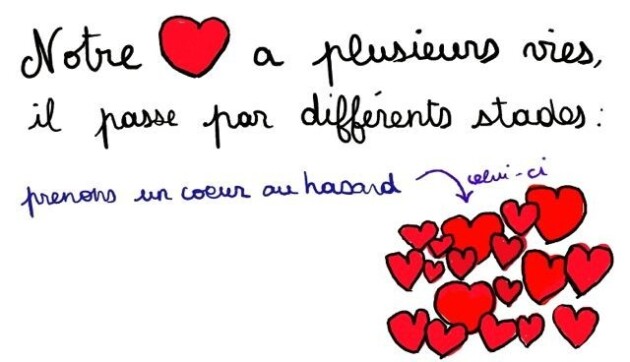 Notre a plusieurs vies,
il passe par différents stades :
prenons un coeur au hasard
celui-ci